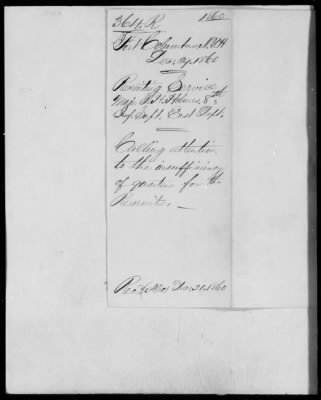 364. R 1860
Fort Columbus, N.Y.H.
Dec. 29. 1860
Recruiting Service
Maj. T. H. Holmes, 8th
Inf. Supt. East. Dept.
Calling attention
to the insufficiency
of quarters for the
Recruits.
Dec. 1860